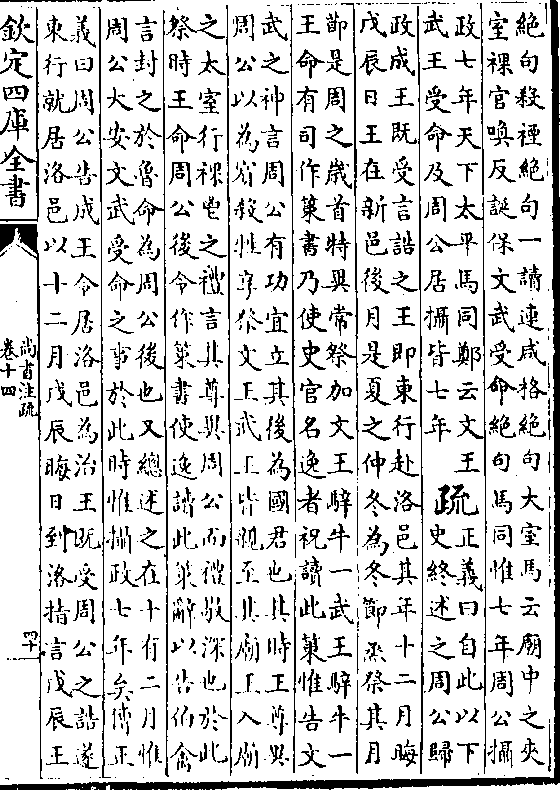 絶句殺禋絶句一讀連咸格絶句大室馬云廟中之夾
室祼官喚反誕保文武受命絶句馬同惟七年周公攝
政七年天下太平馬同鄭云文王
武王受命及周公居攝皆七年
疏
正義曰自此以下
史終述之周公歸
政成王既受言誥之王即東行赴洛邑其年十二月晦
戊辰日王在新邑後月是夏之仲冬為冬節烝祭其月
節是周之歲首特異常祭加文王騂牛一武王騂牛一
王命有司作策書乃使史官名逸者祝讀此策惟告文
武之神言周公有功宜立其後為國君也其時王尊異
周公以為賓殺牲享祭文王武王皆親至其廟王入廟
之太室行祼鬯之禮言其尊異周公而禮敬深也於此
祭時王命周公後令作策書使逸讀此策辭以告伯禽
言封之於魯命為周公後也又總述之在十有二月惟
周公大安文武受命之事於此時惟攝政七年矣傳正
義曰周公告成王令居洛邑為治王既受周公之誥遂
東行就居洛邑以十二月戊辰晦日到洛指言戊辰王
欽定四庫全書
尚書注疏
卷十四
四十